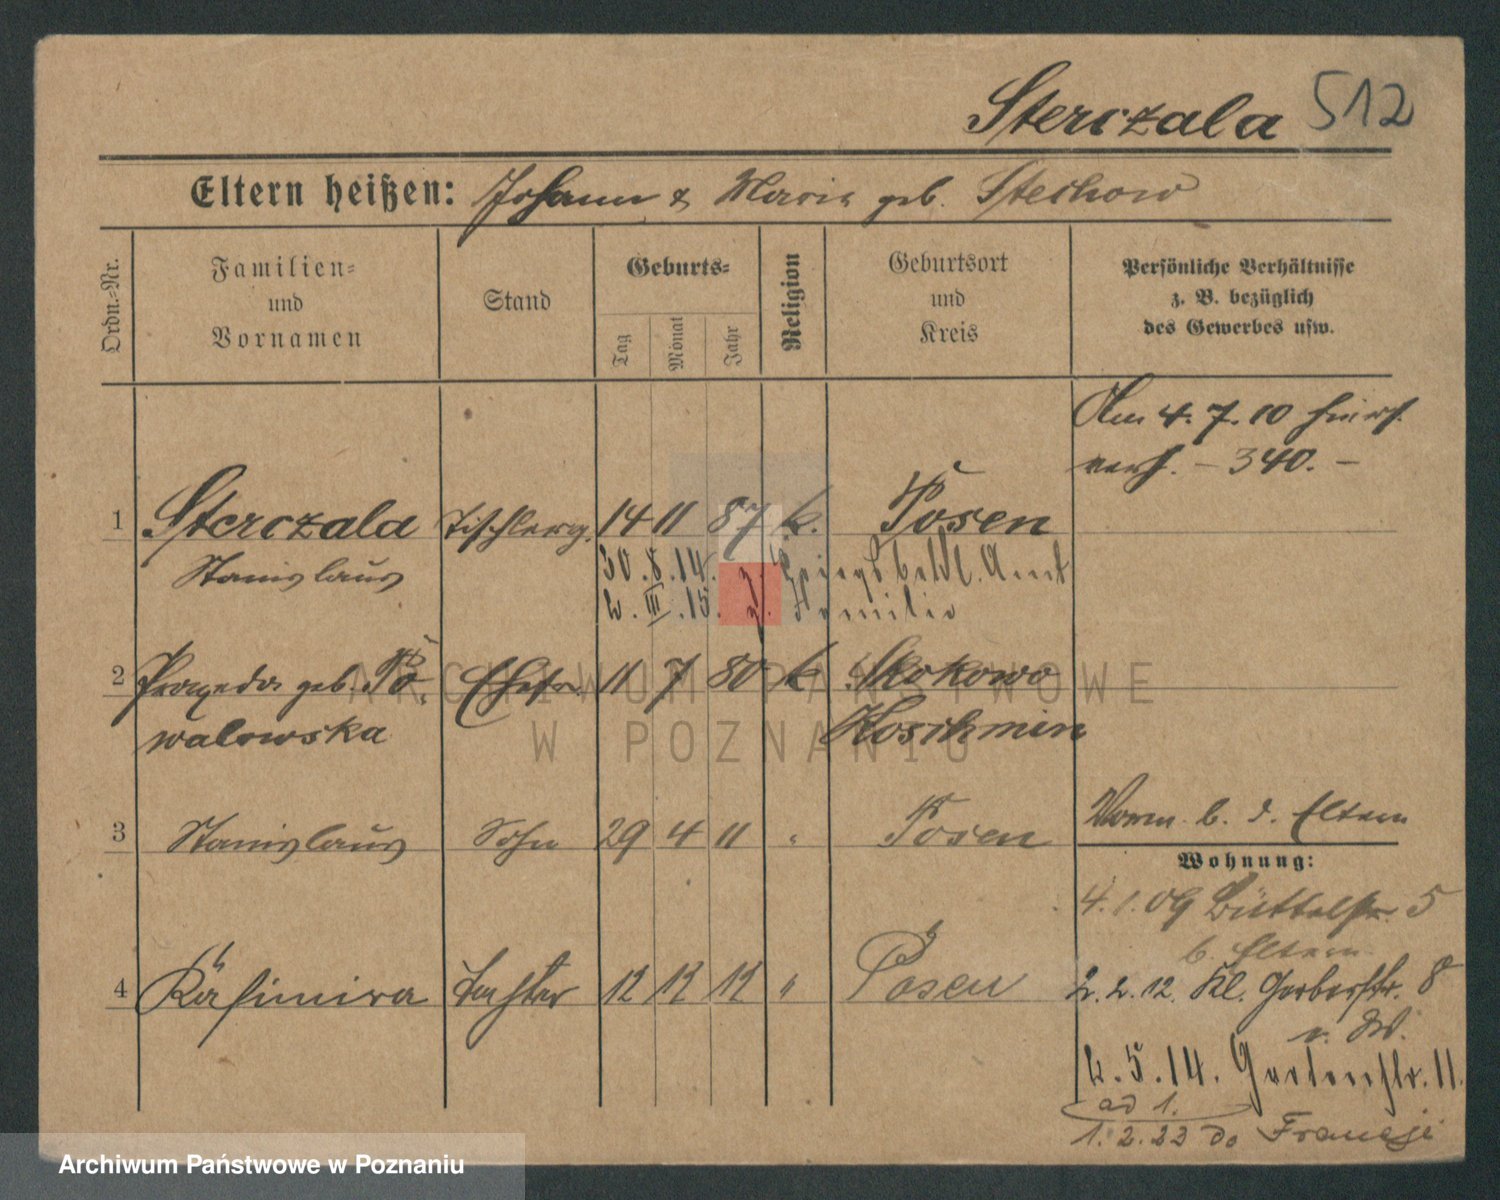 Sterczala 512
Eltern heißen: Johann & Maria geb. Stechow
Ordn.=Nr.
Familien=
und
Vornamen
Stand
Geburts=
Tag
Monat
Jahr
Religion
Geburtsort
und
Kreis
Persönliche Verhältnisse
z. B. bezüglich
des Gewerbes usw.
Am 4. 7. 10
verh. - 340. -
1 Sterczala Tischlerg. 14 11 87 k. Posen
Stanislaus
30. 8. 14. z.
2. III. 15. z. Familie
2 Praxeda geb. Po- Ehefr. 11 7 80 k Skokowo
walowska Koschmin
3 Stanislaus Sohn 29 4 11 " Posen
Worm. b. d. Eltern
Wohnung:
4. 1. 09 Büttelstr. 5
b. Eltern
4 Kasimira Tochter 12 12 12 " Posen
2. 2. 12. Kl. Gerberstr. 8
2. 5. 14. Gartenstr. 11.
ad 1.
1. 2. 23 do Francji
ARCHIWUM PAŃSTWOWE
W POZNANIU
Archiwum Państwowe w Poznaniu